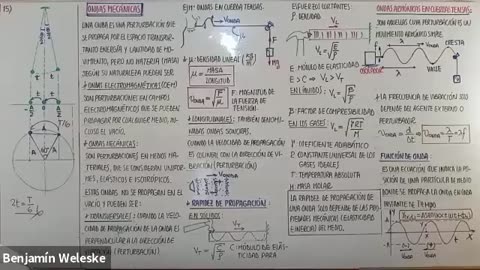 15)
t
t
A
A
2t = T/6
ONDAS MECÁNICAS
UNA ONDA ES UNA PERTURBACIÓN QUE
SE PROPAGA POR EL ESPACIO TRANSPOR-
TANTO ENERGÍA Y CANTIDAD DE MO-
VIMIENTO, PERO NO MATERIA (MASA)
SEGÚN SU NATURALEZA PUEDEN SER
* ONDAS ELECTROMAGNÉTICAS (OEM)
SON PERTURBACIONES EN CAMPOS
ELECTROMAGNÉTICOS QUE SE PUEDEN
PROPAGAR POR CUALQUIER MEDIO, IN-
CLUSO EL VACÍO.
* ONDAS MECÁNICAS:
SON PERTURBACIONES EN MEDIOS MATE-
RIALES,
VACÍO Y PUEDEN SER:
* TRANSVERSALES: CUANDO LA VELOCI-
DAD DE PROPAGACIÓN DE LA ONDA ES
PERPENDICULAR A LA DIRECCIÓN DE
(PERTURBACIÓN)
EJM: ONDAS EN CUERDAS TENSAS.
VONDA
F
Mg
μ: DENSIDAD LINEAL
μ = MASA/LONGITUD
VONDA = √F/μ
F: MAGNITUD DE
LA FUERZA DE
TENSIÓN.
* LONGITUDINALES: TAMBIÉN DENOMI-
NADAS ONDAS SONORAS,
CUANDO LA VELOCIDAD DE PROPAGACIÓN
ES COLINEAL CON LA DIRECCIÓN DE VI-
BRACIÓN (PERTURBACIÓN).
VONDA
* RAPIDEZ DE PROPAGACIÓN:
EN SÓLIDOS
VT
C: MÓDULO DE ELAS-
TICIDAD PARA
ESFUERZO CORTANTES.
ρ: DENSIDAD
VL
E: MÓDULO DE ELASTICIDAD
E > C → VL > VT
EN LÍQUIDOS:
B: FACTOR DE COMPRESIBILIDAD
EN LOS GASES
γ: COEFICIENTE ADIABÁTICO
R: CONSTANTE UNIVERSAL DE LOS
GASES IDEALES.
T: TEMPERATURA ABSOLUTA
M: MASA MOLAR
LA RAPIDEZ DE PROPAGACIÓN DE
UNA ONDA SOLO DEPENDE DE LAS PRO-
PIEDADES MECÁNICAS (ELASTICIDAD
E INERCIA) DEL MEDIO.
ONDAS ARMÓNICAS EN CUERDAS TENSAS:
SON AQUELLAS CUYA PERTURBACIÓN ES UN
MOVIMIENTO ARMÓNICO SIMPLE.
VONDA
CRESTA
VALLE
* LA FRECUENCIA DE VIBRACIÓN SOLO
DEPENDE DEL AGENTE EXTERNO O
PERTURBADOR.
VONDA = λ/T = λf
FUNCIÓN DE ONDA:
ES UNA ECUACIÓN QUE INDICA LA PO-
SICIÓN DE UNA PARTÍCULA DE MEDIO
DONDE SE PROPAGA LA ONDA EN UN
INSTANTE DE TIEMPO.
Benjamín Weleske